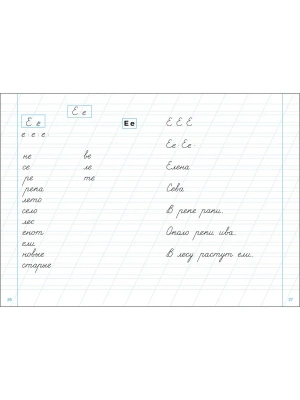 Е е
Е е
Е е
е · е · е ·
не ве
се ле
ре те
река
лето
село
лес
енот
ели
новые
старые
Е Е Е
Ее Ее
Елена
Сева
В реке раки.
Около реки ива.
В лесу растут ели.
27